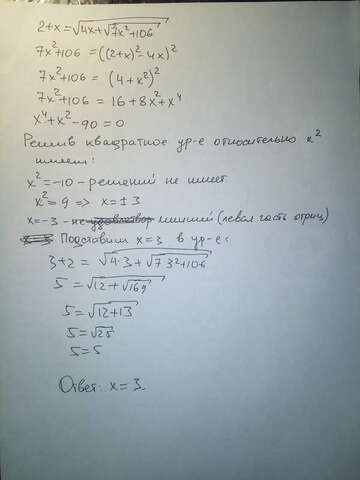 2+x=√(4x+√(7x²+106))
7x²+106=((2+x)²-4x)²
7x²+106=(4+x²)²
7x²+106=16+8x²+x⁴
x⁴+x²-90=0
Решив квадратное ур-е относительно x²
имеем:
x²=-10-решений не имеет
x²=9 => x=±3
x=-3 - лишний (левая часть отриц)
Подставим x=3 в ур-е:
3+2=√(4·3+√(7·3²+106))
5=√(12+√169)
5=√(12+13)
5=√25
5=5
Ответ: x=3.